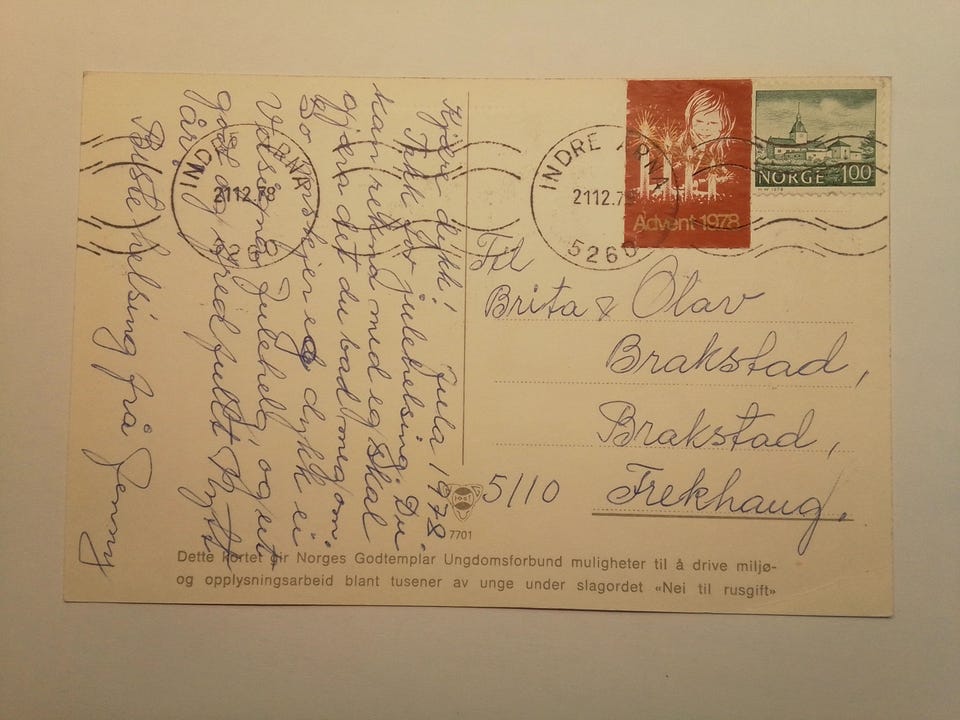 Kjære dykk! Jula 1978.
Takk for julehelsing. Du
kan rekna med eg skal
gjera det du bad meg om.
So ønskjer eg dykk ei
Velsigna Julehelg, og eit
godt og fredfullt Nytt
år!
Beste helsing frå Jenny
INDRE ARNA
21 12.78
5260
INDRE ARNA
21 12.78
5260
Advent 1978
NORGE 100
Til
Brita & Olav
Brakstad,
Brakstad,
5110 Frekhaug.
7701
Dette kortet gir Norges Godtemplar Ungdomsforbund muligheter til å drive miljø-
og opplysningsarbeid blant tusener av unge under slagordet «Nei til rusgift»